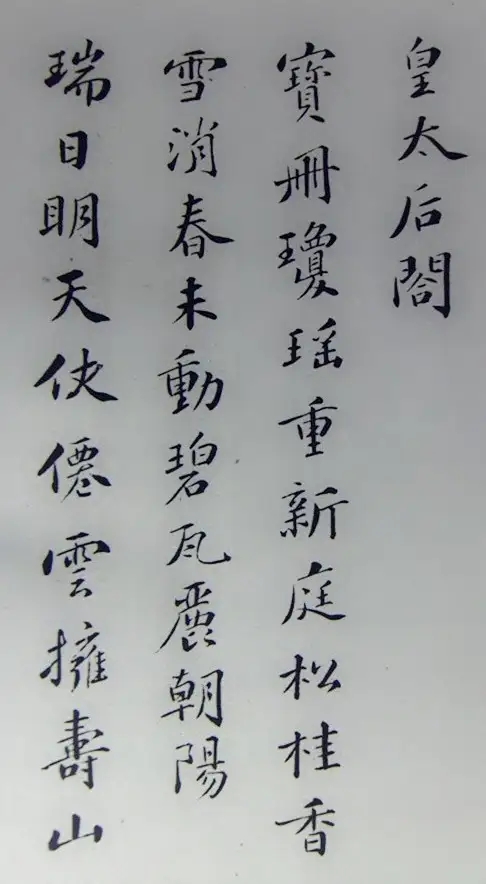 皇太后閤
寶冊瓊瑶重新庭松桂香
雪消春未動碧瓦麗朝陽
瑞日明天仗僊雲擁壽山